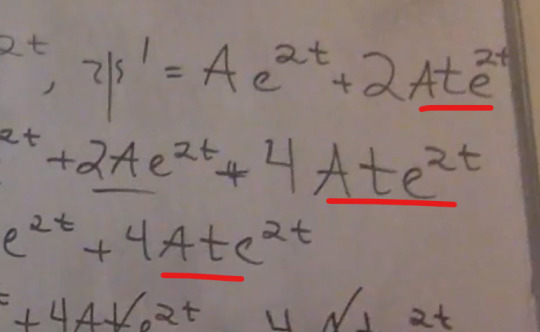 2t, ψ' = Ae^2t + 2Ate^2t
2t + 2Ae^2t + 4Ate^2t
e^2t + 4Ate^2t
+ 4A 2t 4 2t